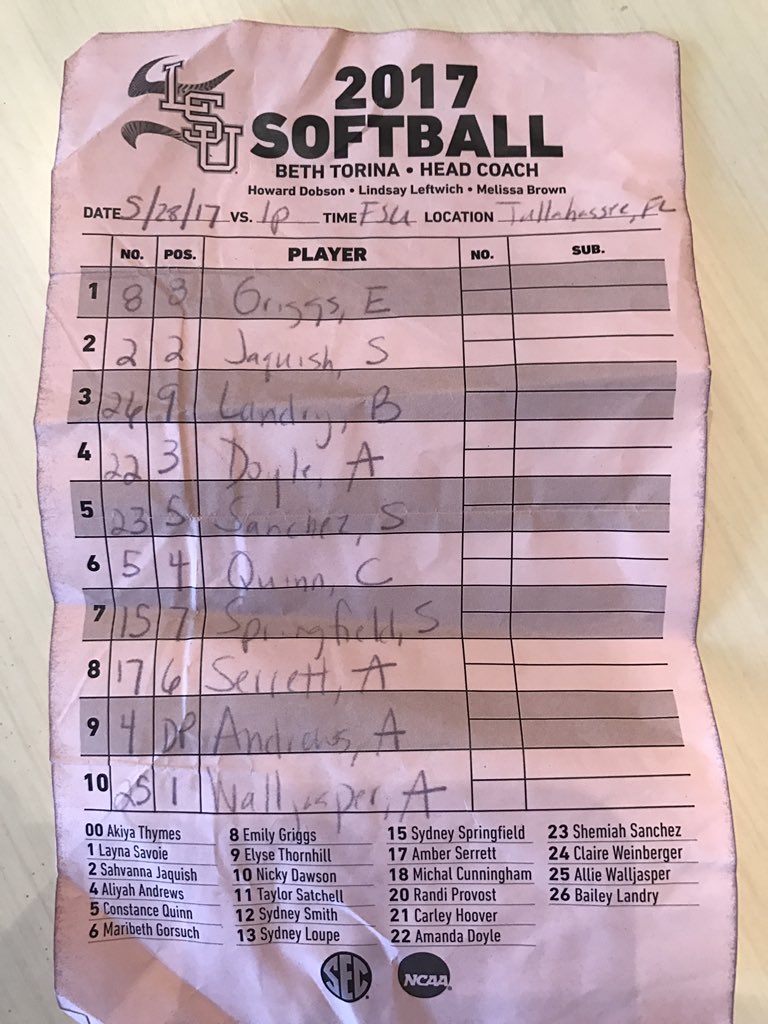 LSU
2017
SOFTBALL
BETH TORINA • HEAD COACH
Howard Dobson • Lindsay Leftwich • Melissa Brown
DATE 5/28/17 VS. 1p TIME FSU LOCATION Tallahassee, FL
NO. POS. PLAYER NO. SUB.
1 8 8 Griggs, E
2 2 2 Jaquish, S
3 26 9 Landry, B
4 22 3 Doyle, A
5 23 5 Sanchez, S
6 5 4 Quinn, C
7 15 7 Springfield, S
8 17 6 Serrett, A
9 4 DP Andrews, A
10 25 1 Walljasper, A
00 Akiya Thymes
1 Layna Savoie
2 Sahvanna Jaquish
4 Aliyah Andrews
5 Constance Quinn
6 Maribeth Gorsuch
8 Emily Griggs
9 Elyse Thornhill
10 Nicky Dawson
11 Taylor Satchell
12 Sydney Smith
13 Sydney Loupe
15 Sydney Springfield
17 Amber Serrett
18 Michal Cunningham
20 Randi Provost
21 Carley Hoover
22 Amanda Doyle
23 Shemiah Sanchez
24 Claire Weinberger
25 Allie Walljasper
26 Bailey Landry
SEC
NCAA